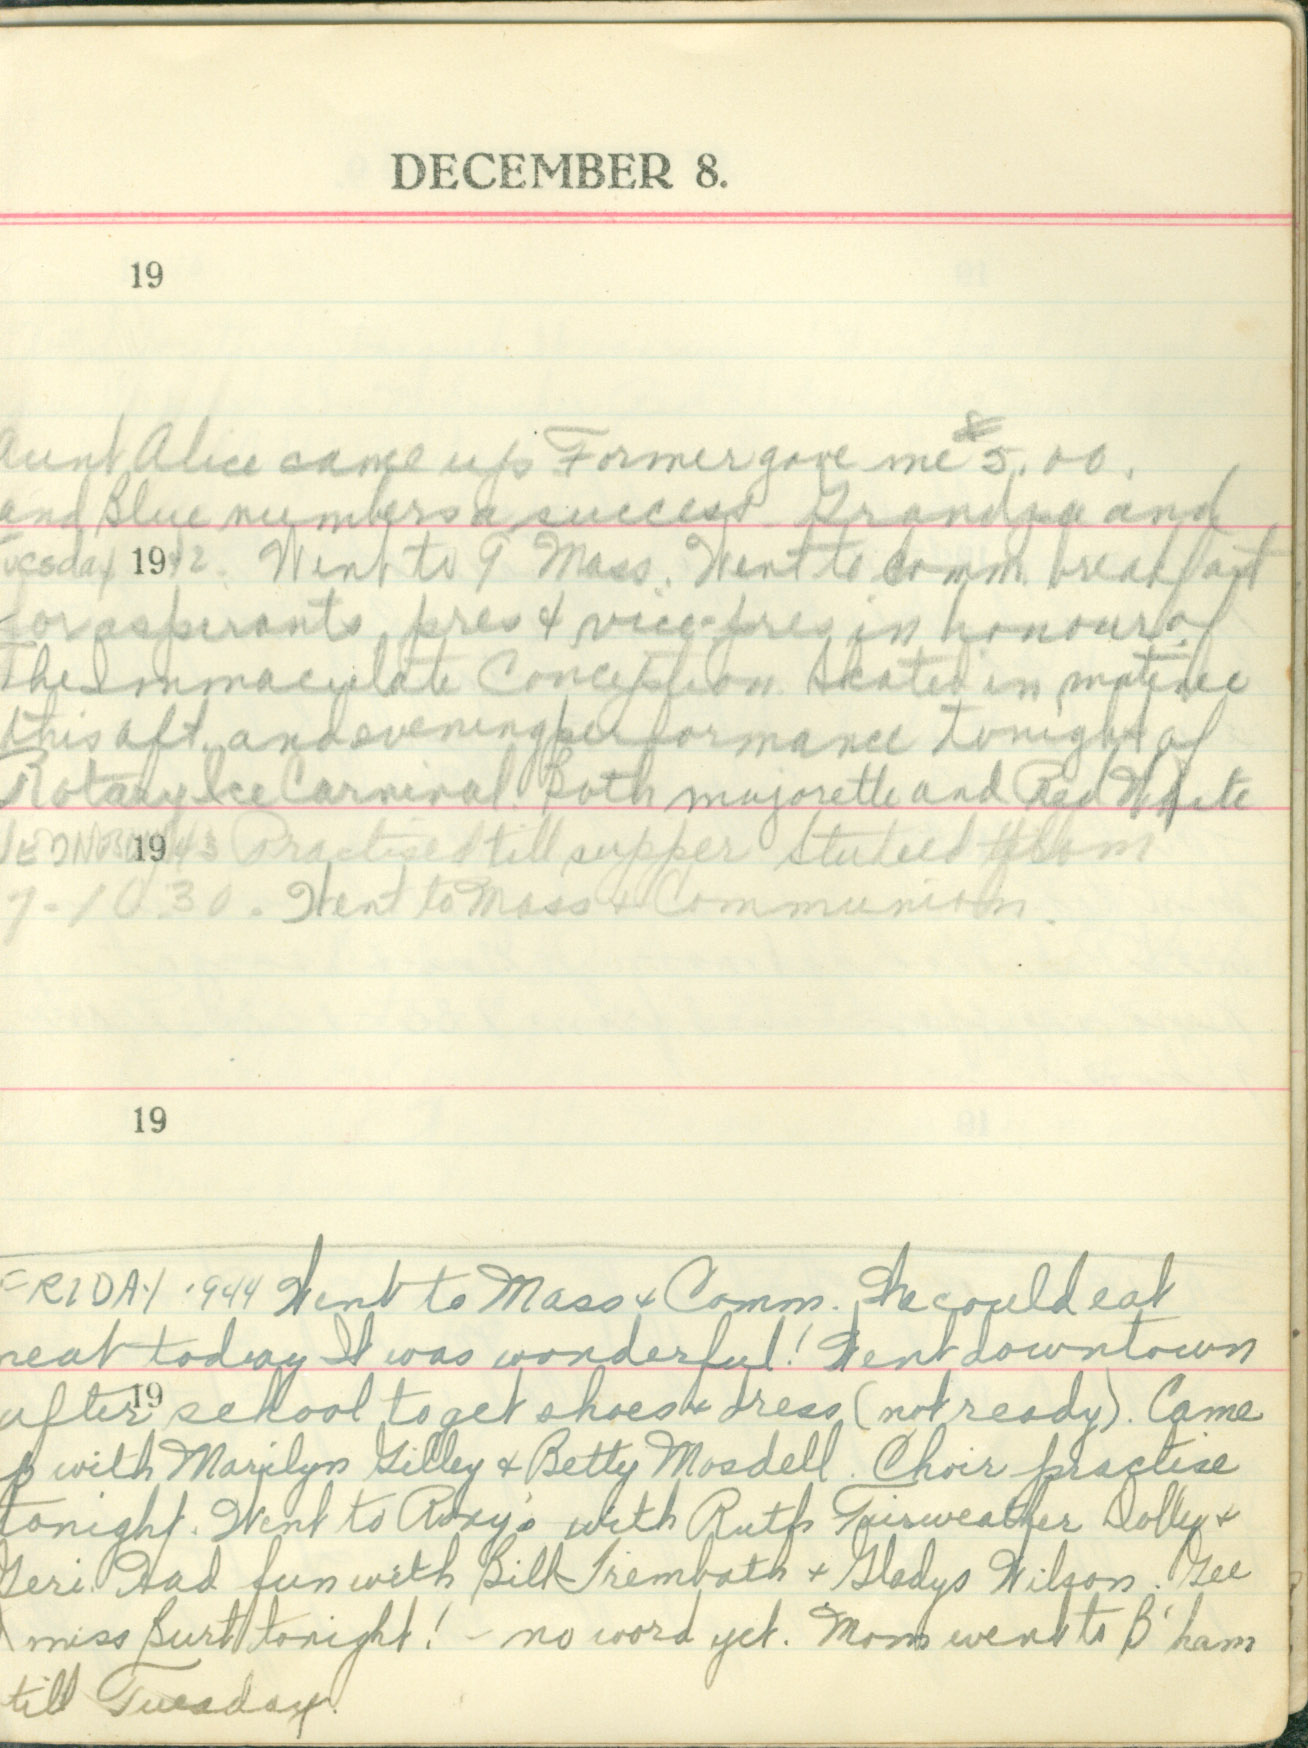 DECEMBER 8.
19
Aunt Alice came up Former gave me $5.00.
and Blue numbers a success. Grandpa and
Tuesday 1942. Went to 9 Mass. Went to comm. breakfast
for aspirants, pres & vice-pres in honour of
The Immaculate Conception. Skated in matinee
this aft. and evening performance tonight of
Rotary Ice Carnival. Both majorette and Red White
WEDNESDAY 1943 Practised till supper Studied from
7-10.30. Went to Mass + Communion.
19
FRIDAY 1944 Went to Mass + Comm. We could eat
meat today It was wonderful! Went downtown
19
after school to get shoes + dress (not ready). Came
up with Marilyn Gilley + Betty Mosdell. Choir practise
tonight. Went to Roxy's with Ruth Fairweather Dolly +
Geri. Had fun with Bill Trembath + Gladys Wilson. Gee
I miss Burt tonight! - no word yet. Mom went to B'ham
till Tuesday.